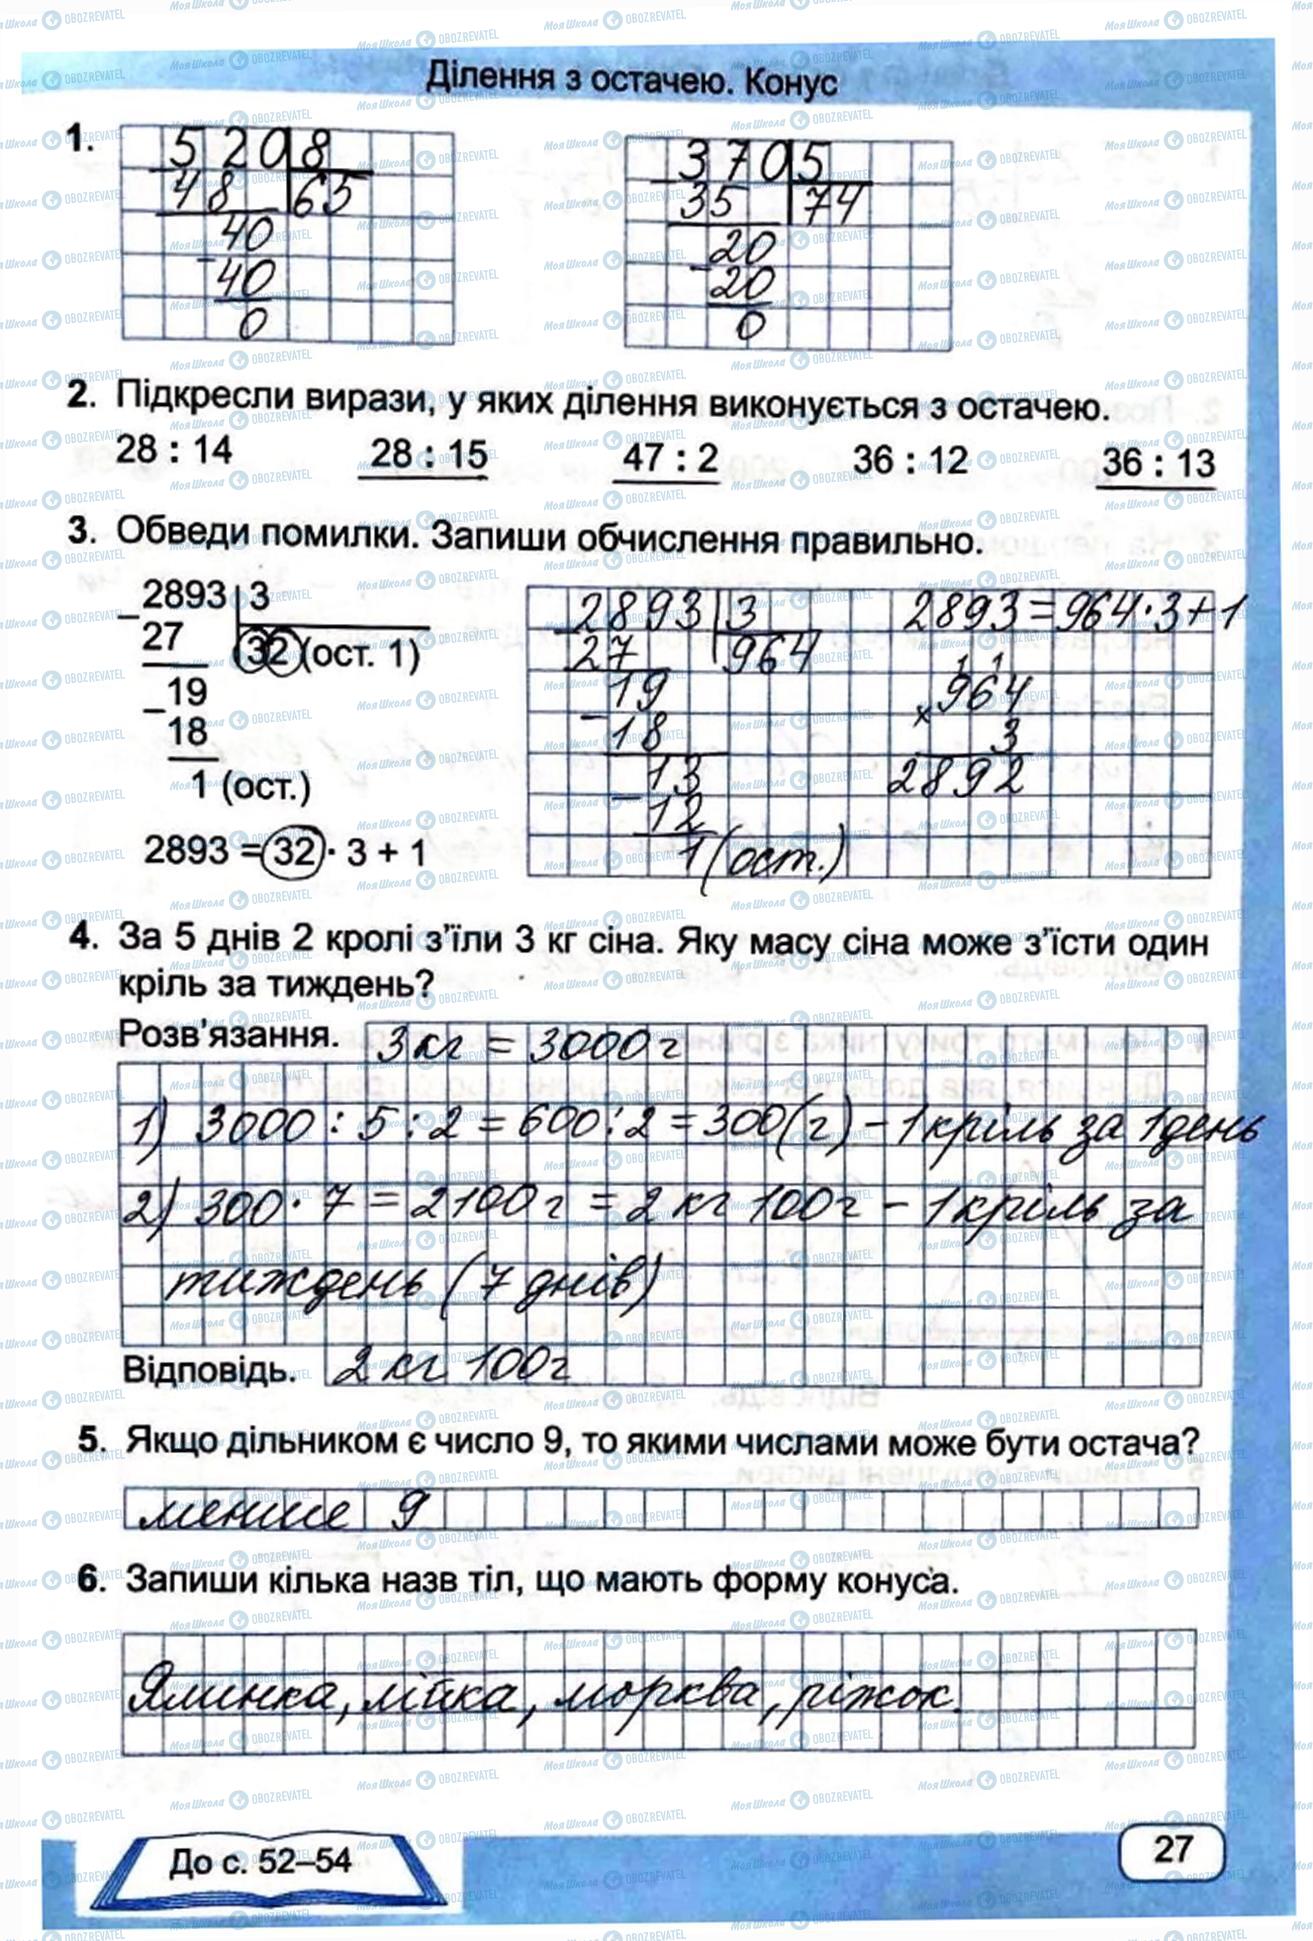 Ділення з остачею. Конус
1.
520 8
48 65
40
40
0
370 5
35 74
20
20
0
2. Підкресли вирази, у яких ділення виконується з остачею.
28 : 14 28 : 15 47 : 2 36 : 12 36 : 13
3. Обведи помилки. Запиши обчислення правильно.
2893 3
27 32 (ост. 1)
19
18
1 (ост.)
2893 = 32 · 3 + 1
2893 3
27 964
19
18
13
12
1 (ост.)
2893 = 964 · 3 + 1
1 1
964
× 3
2892
4. За 5 днів 2 кролі з’їли 3 кг сіна. Яку масу сіна може з’їсти один
кріль за тиждень?
Розв’язання. 3 кг = 3000 г
1) 3000 : 5 : 2 = 600 : 2 = 300 (г) – 1 кріль за 1 день
2) 300 · 7 = 2100 г = 2 кг 100 г – 1 кріль за
тиждень (7 днів)
Відповідь. 2 кг 100 г
5. Якщо дільником є число 9, то якими числами може бути остача?
менше 9
6. Запиши кілька назв тіл, що мають форму конуса.
Ялинка, лійка, морква, ріжок.
До с. 52–54
27
МояШкола OBOZREVATEL